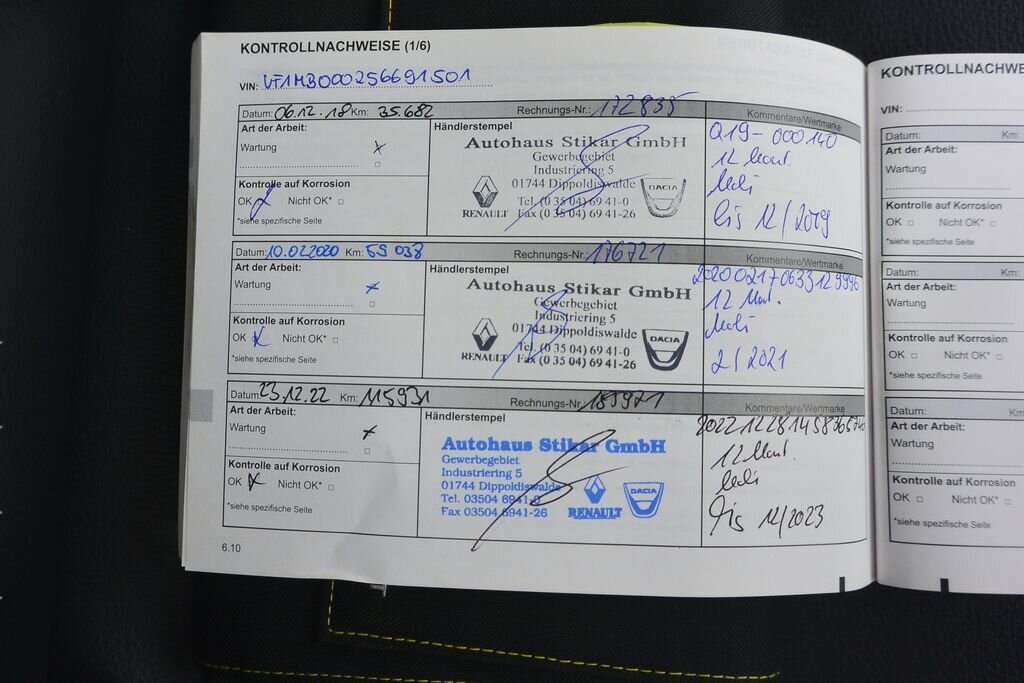 KONTROLLNACHWEISE (1/6)
VIN: VF1MB000256691501
Datum: 06.12.18 Km: 35.682 Rechnungs-Nr.: 172835 Kommentare/Wertmarke
Art der Arbeit:
Wartung x
Kontrolle auf Korrosion
OK x Nicht OK* □
*siehe spezifische Seite
Händlerstempel
Autohaus Stikar GmbH
Gewerbegebiet
Industriering 5
01744 Dippoldiswalde
Tel. (0 35 04) 69 41-0
Fax (0 35 04) 69 41-26
RENAULT
DACIA
Q19-000140
12 Mont.
Mobi
bis 12/2019
Datum: 10.02.2020 Km: 59 038 Rechnungs-Nr.: 176721 Kommentare/Wertmarke
Art der Arbeit:
Wartung x
Kontrolle auf Korrosion
OK x Nicht OK* □
*siehe spezifische Seite
Händlerstempel
Autohaus Stikar GmbH
Gewerbegebiet
Industriering 5
01744 Dippoldiswalde
Tel. (0 35 04) 69 41-0
Fax (0 35 04) 69 41-26
RENAULT
DACIA
12 Mont.
Mobi
2/2021
Datum: 23.12.22 Km: 115931 Rechnungs-Nr. Kommentare/Wertmarke
Art der Arbeit:
Wartung x
Kontrolle auf Korrosion
OK x Nicht OK* □
*siehe spezifische Seite
Händlerstempel
Autohaus Stikar GmbH
Gewerbegebiet
Industriering 5
01744 Dippoldiswalde
Tel. 03504 6941-0
Fax 03504 6941-26
RENAULT
DACIA
12 Mont.
Mobi
Bis 12/2023
6.10
KONTROLLNACHWE
VIN:
Datum: Km:
Art der Arbeit:
Wartung
Kontrolle auf Korrosion
OK □ Nicht OK* □
*siehe spezifische Seite
Datum: Km:
Art der Arbeit:
Wartung
Kontrolle auf Korrosion
OK □ Nicht OK* □
*siehe spezifische Seite
Datum: Km:
Art der Arbeit:
Wartung
Kontrolle auf Korrosion
OK □ Nicht OK* □
*siehe spezifische Seite